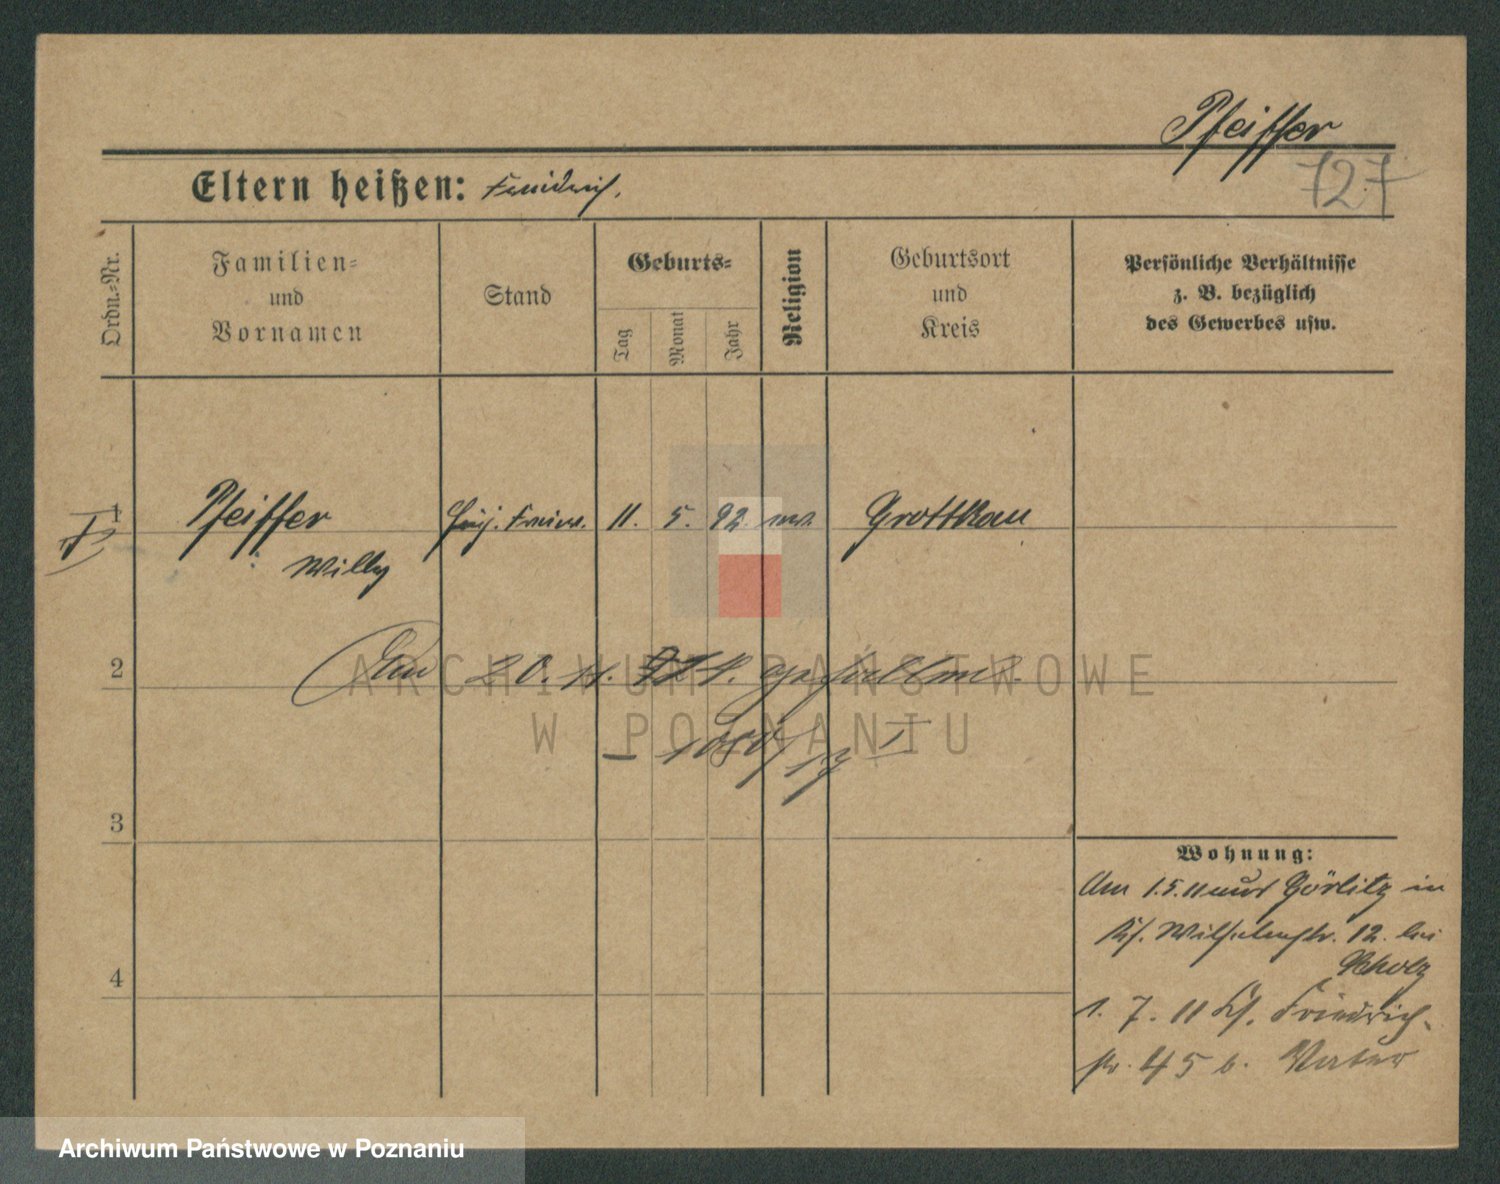 Pfeiffer
727
Eltern heißen: Friedrich.
Ordn.-Nr.
Familien-
und
Vornamen
Stand
Geburts-
Tag
Monat
Jahr
Religion
Geburtsort
und
Kreis
Persönliche Verhältnisse
z. B. bezüglich
des Gewerbes usw.
1 Pfeiffer 11. 5. 92. Grottkau
Willy
2 20. 11.
ARCHIWUM PAŃSTWOWE
W POZNANIU
3
Wohnung:
Am 1.5.11 aus Görlitz in
Wilhelmstr. 12. bei
Scholz
4
1. 7. 11 Friedrich-
str. 45 b. Vater
Archiwum Państwowe w Poznaniu